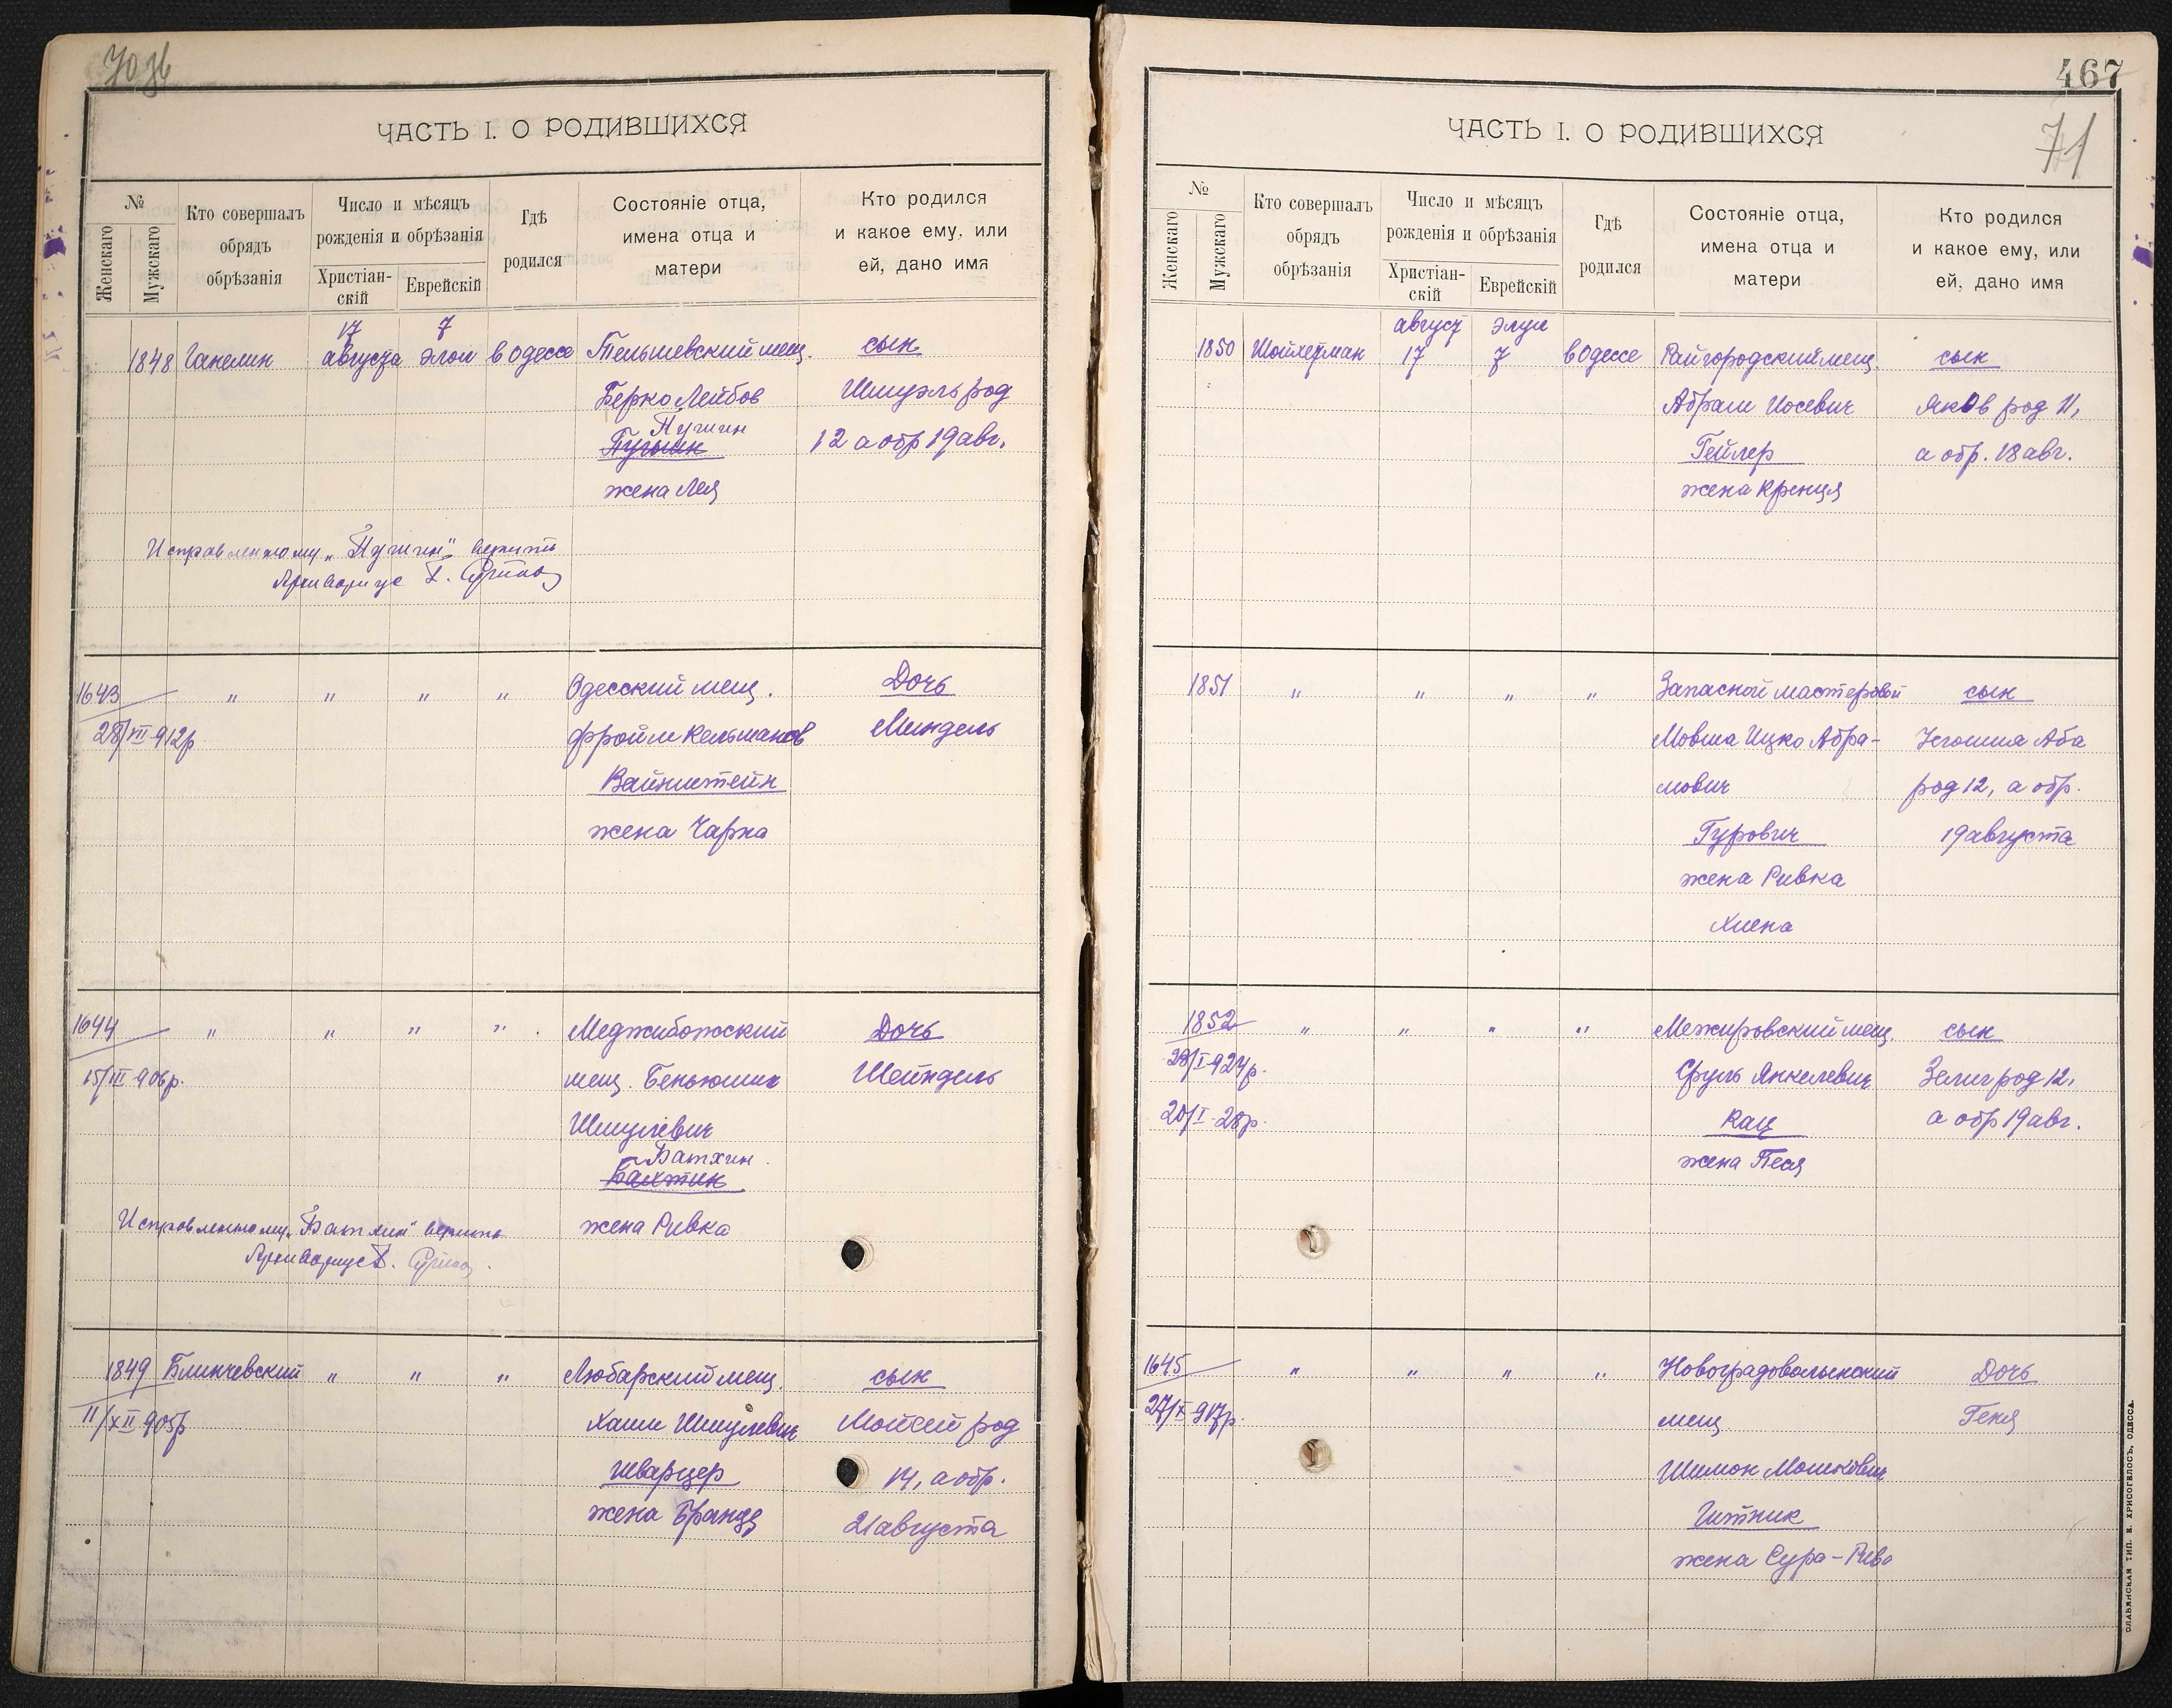 70 об
ЧАСТЬ I. О РОДИВШИХСЯ
№
Женскаго
Мужскаго
Кто совершалъ
обрядъ
обрѣзанія
Число и мѣсяцъ
рожденія и обрѣзанія
Христіан-
скій
Еврейскій
Гдѣ
родился
Состояніе отца,
имена отца и
матери
Кто родился
и какое ему, или
ей, дано имя
17 7
1848 Ганелин августа элол в Одессе Тельшевский мещ. сын
Берко Лейбов Шмуэль род
Пугин 12 а обр 19 авг.
жена Лея
Исправленному „Пугин" верить
Архивариус
1643 " " " " Одесский мещ. Дочь
28/XII-912р. Фройм Кельманов Миндель
Вайнштейн
жена Чарна
1644 " " " " Меджибожский Дочь
15/III-906р. мещ. Беньюмин Шейндель
Шмулевич
Батхин
Бахтин
жена Ривка
Исправленному „Батхин" верить
Архивариус
1849 Блинчевский " " " Любарский мещ. сын
11/XII 905р Хаим Шмулевич Мойсей род
Шварцер 14, а обр.
жена Брандя 21 августа
467
71
ЧАСТЬ I. О РОДИВШИХСЯ
№
Женскаго
Мужскаго
Кто совершалъ
обрядъ
обрѣзанія
Число и мѣсяцъ
рожденія и обрѣзанія
Христіан-
скій
Еврейскій
Гдѣ
родился
Состояніе отца,
имена отца и
матери
Кто родился
и какое ему, или
ей, дано имя
август элул
1850 Шойхетман 17 7 в Одессе Райгородский мещ. сын
Абрам Иосевич Яков род 11,
Гейлер а обр. 18 авг.
жена Кренця
1851 " " " " Запасной мастеровой сын
Мовша Ицко Абра- Иегошиа Аба
мович род 12, а обр.
Гурович 19 августа
жена Ривка
Хиена
1852 " " " " Межировский мещ. сын
29/I-924р. Сруль Янкелевич Зелиг род 12,
20/I-28р. Кац а обр 19 авг.
жена Песя
1645 " " " " Новоградоволынский Дочь
27/X-917р. мещ Геня
Шимон Мошкович
Гитник
жена Сура-Рива
СЛАВЯНСКАЯ ТИП. Н. ХРИСОГЕЛОСЪ, ОДЕССА.